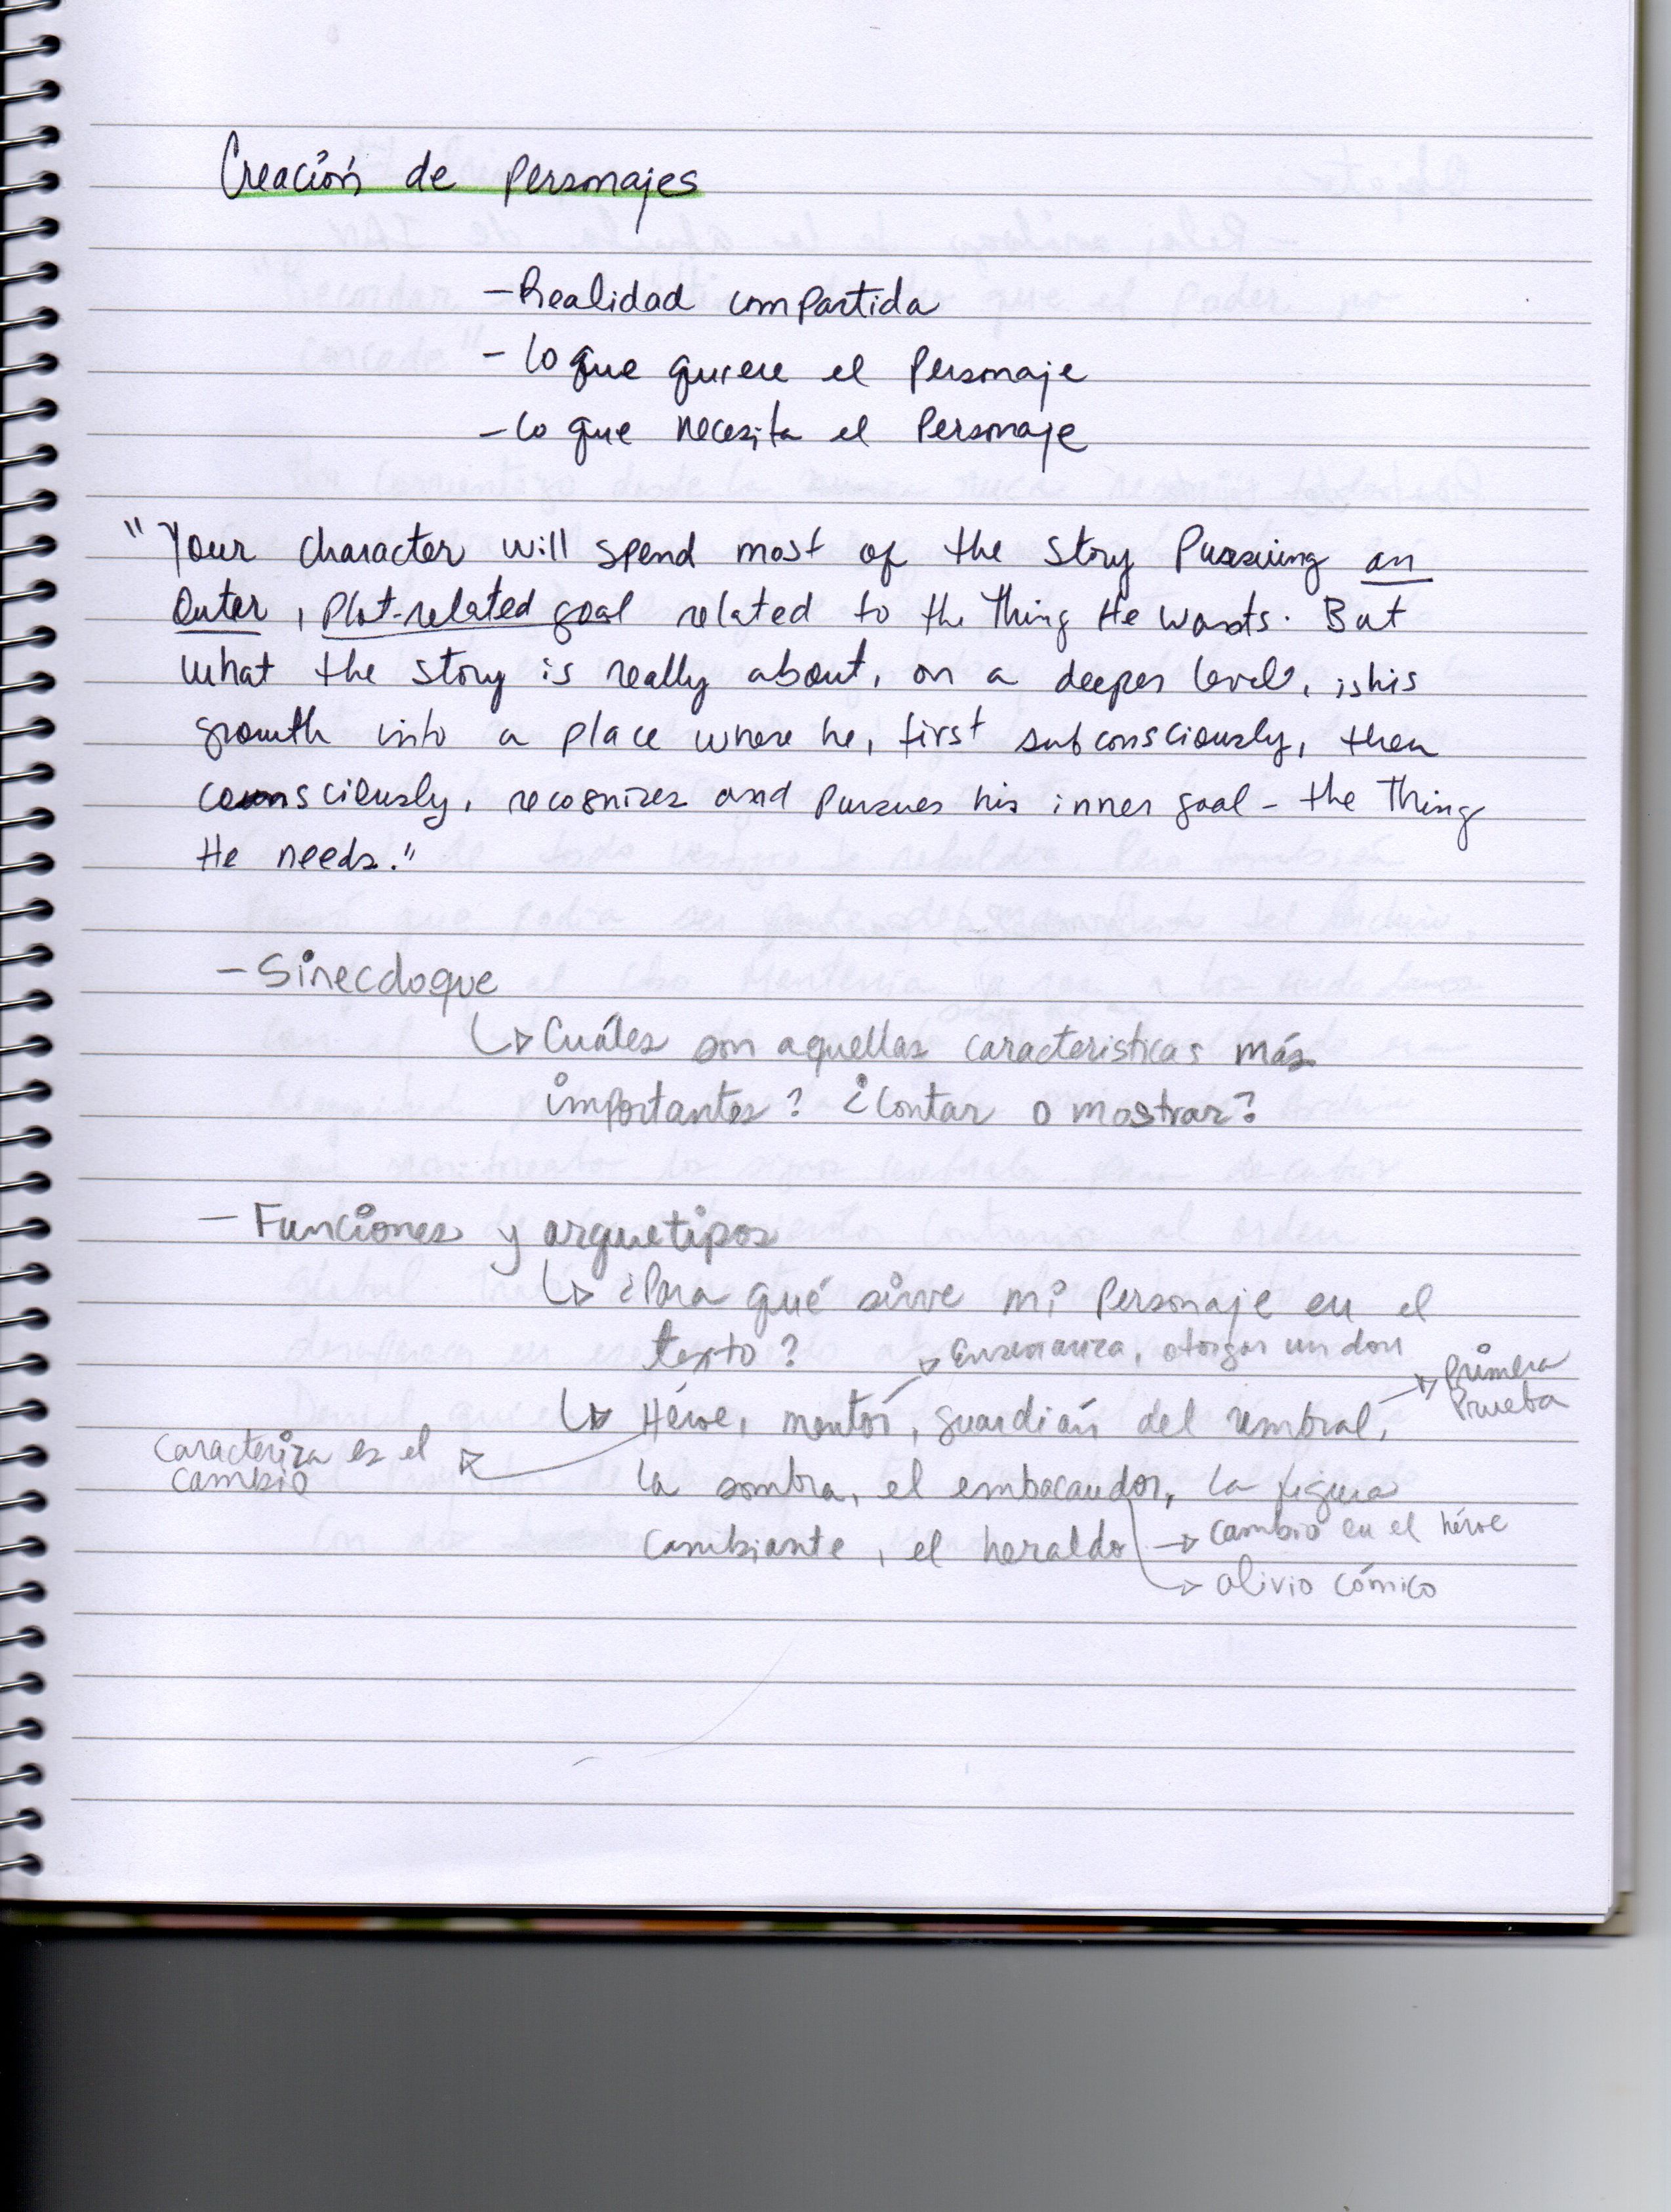 Creación de personajes
- Realidad compartida
- Lo que quiere el personaje
- Lo que necesita el personaje
"Your character will spend most of the story pursuing an
outer, plot-related goal related to the Thing He Wants. But
what the story is really about, on a deeper level, is his
growth into a place where he, first subconsciously, then
consciously, recognizes and pursues his inner goal - the Thing
He needs."
- Sinecdoque
↳ Cuáles son aquellas caracteristicas más
importantes? ¿Contar o mostrar?
- Funciones y arquetipos
↳ ¿Para qué sirve mi personaje en el
texto?
→ Enseñanza, otorgar un don
→ Primera
Prueba
↳ Héroe, mentor, guardián del umbral,
caracteriza es el
cambio
la sombra, el embacaudor, la figura
cambiante, el heraldo
→ cambio en el héroe
→ alivio cómico